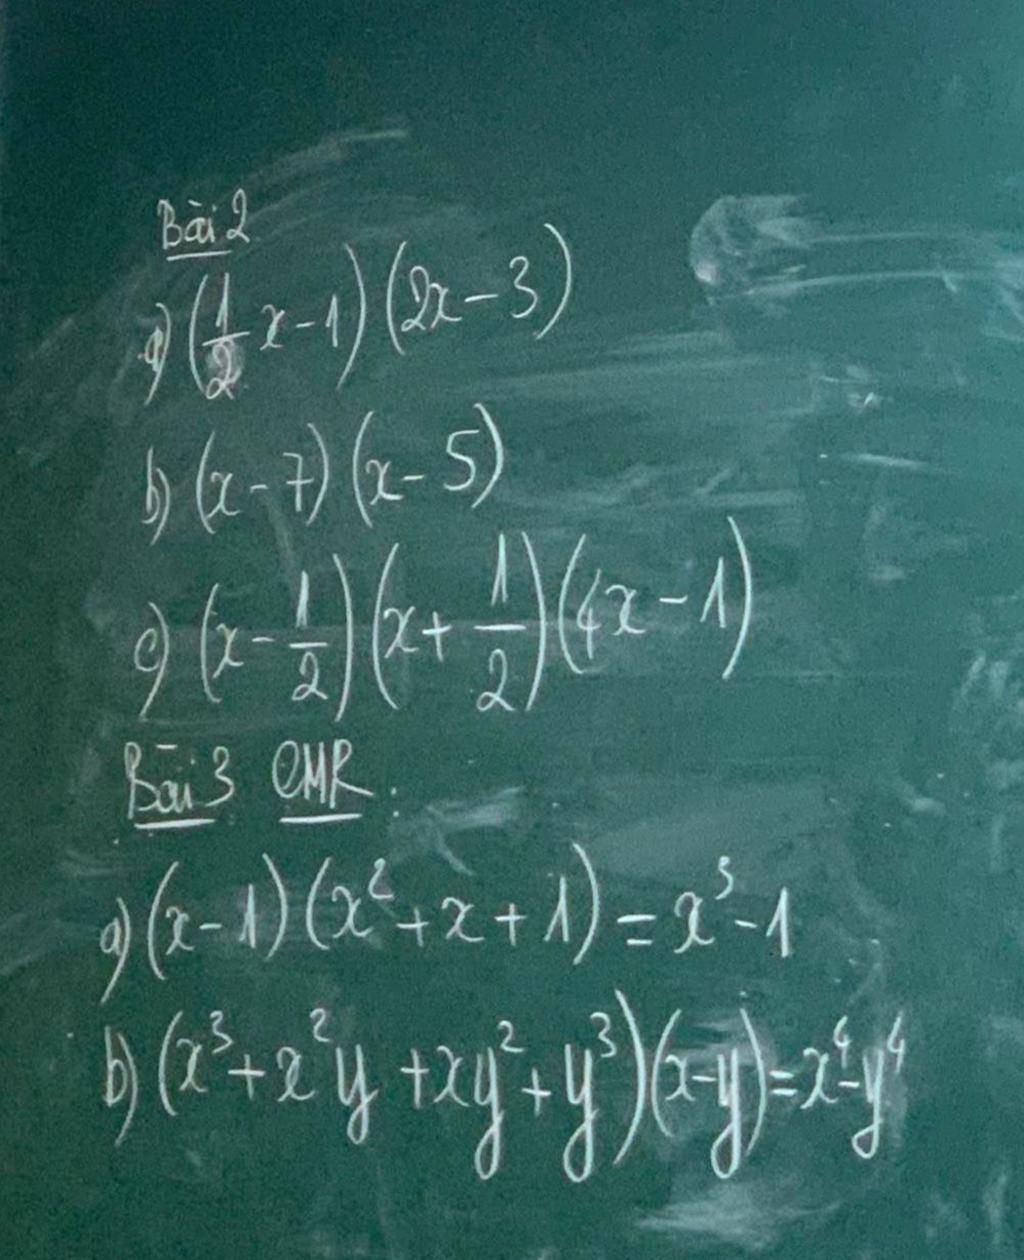 Bài 2
a) (1/2 x - 1) (2x - 3)
b) (x - 7) (x - 5)
c) (x - 1/2) (x + 1/2) (4x - 1)
Bài 3 CMR:
a) (x - 1) (x² + x + 1) = x³ - 1
b) (x³ + x²y + xy² + y³) (x - y) = x⁴ - y⁴